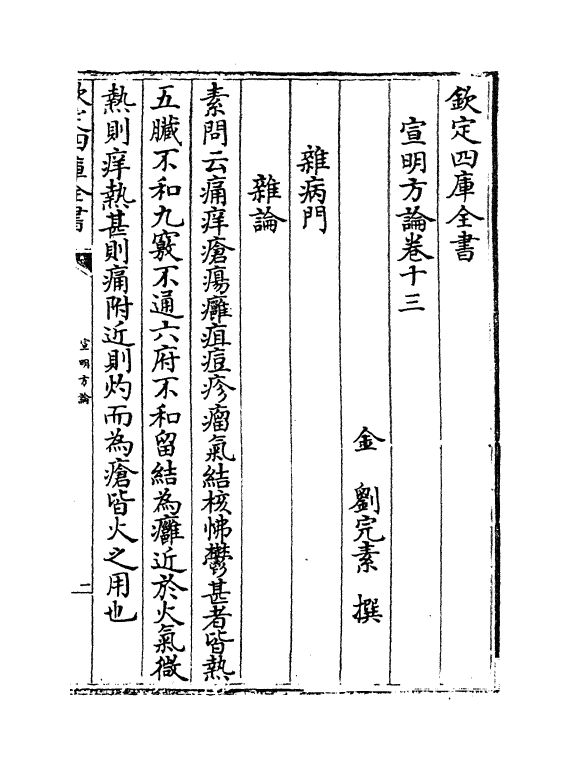 欽定四庫全書
宣明方論卷十三
金　劉完素　撰
雜病門
雜論
素問云痛痒瘡瘍癰疽痘疹瘤氣結核怫鬱甚者皆熱
五臟不和九竅不通六府不和留結為癰近於火氣微
熱則痒熱甚則痛附近則灼而為瘡皆火之用也
欽定四庫全書
宣明方論
二